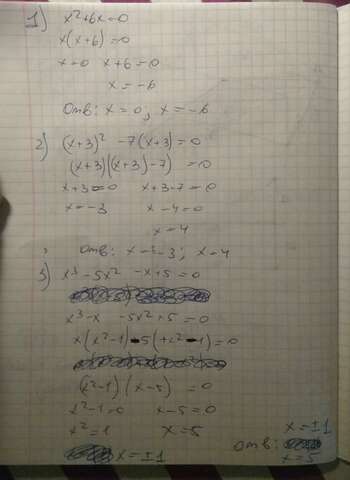 1) x²+6x=0
x(x+6)=0
x=0 x+6=0
x=-6
Отв: x=0; x=-6
2) (x+3)² -7(x+3)=0
(x+3)((x+3)-7) =0
x+3=0 x+3-7=0
x=-3 x-4=0
x=4
Отв: x=-3; x=4
3) x³-5x² -x+5=0
x³-x -5x²+5=0
x(x²-1)-5(+x²-1)=0
(x²-1)(x-5) =0
x²-1=0 x-5=0
x²=1 x=5
x=±1
Отв: x=±1
x=5